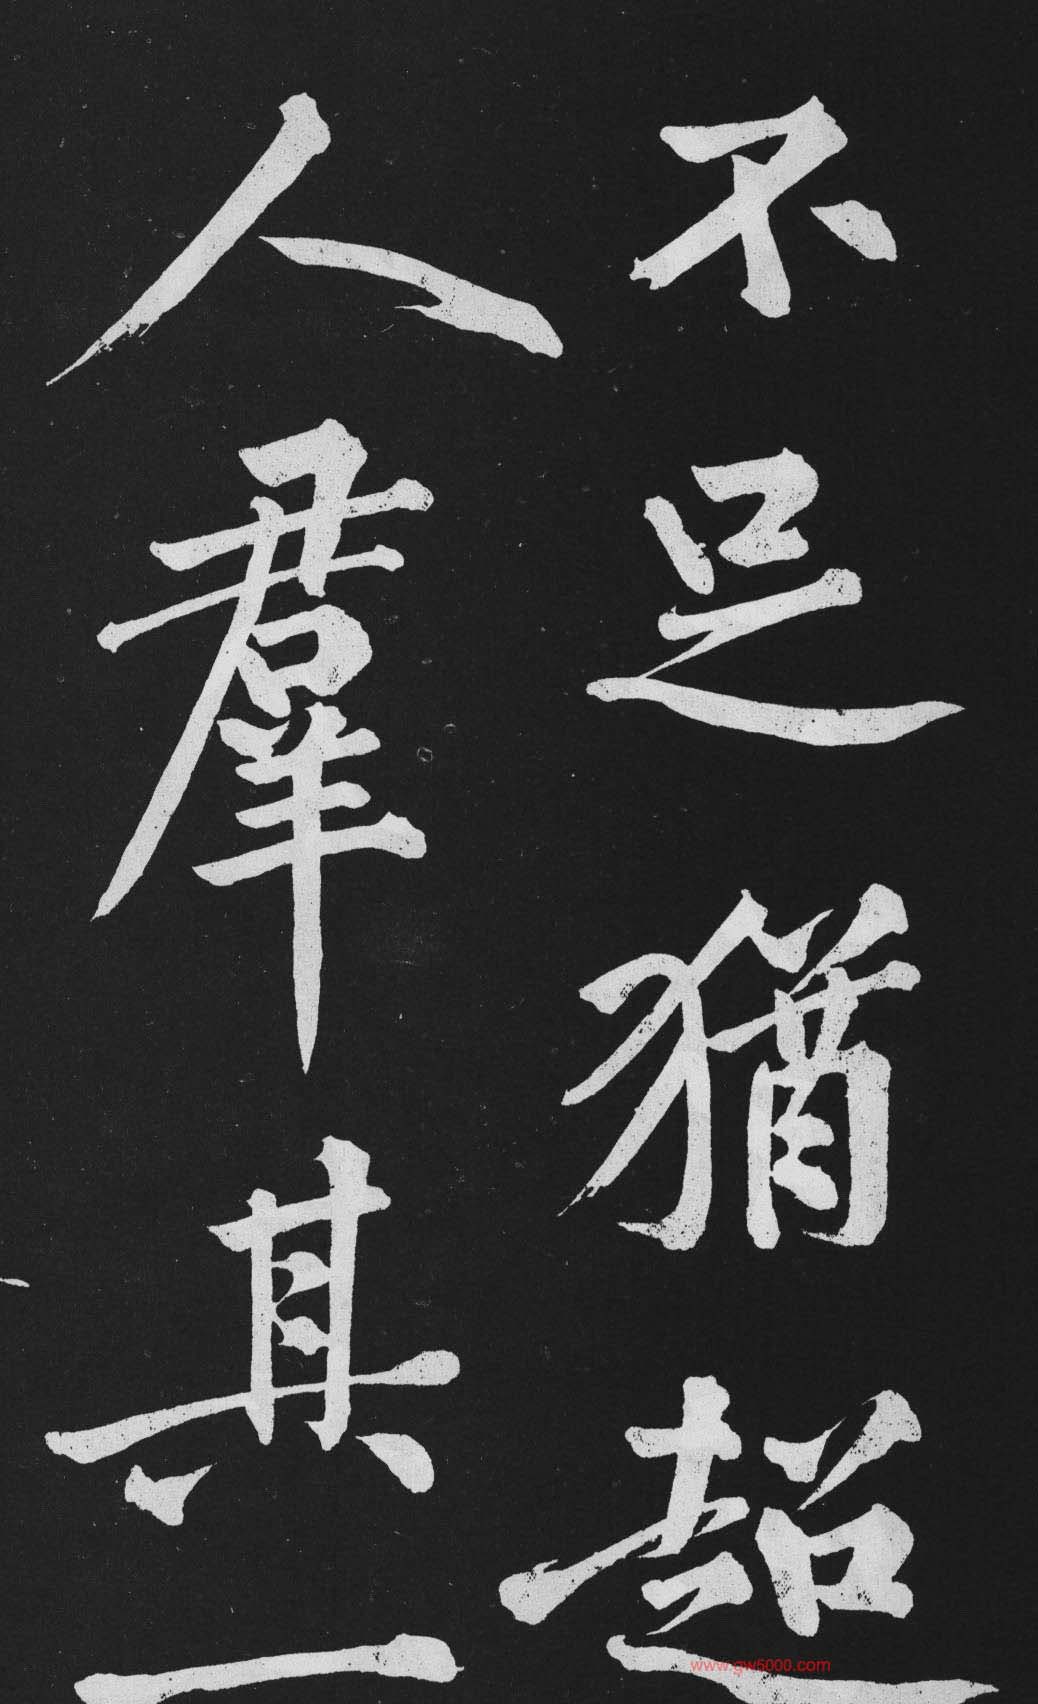 不足猶超
人羣其一
www.gw5000.com